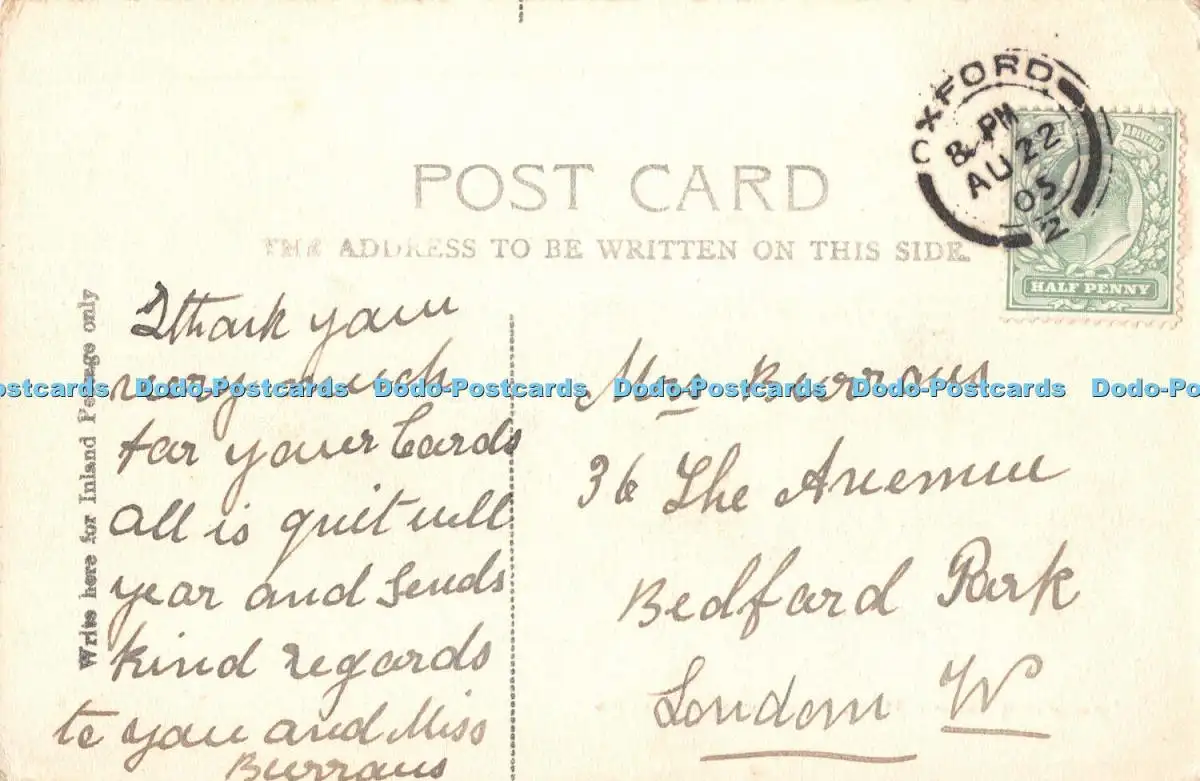 OXFORD
8 PM
AU 22
05
2
HALF PENNY
POST CARD
THE ADDRESS TO BE WRITTEN ON THIS SIDE.
Write here for Inland Postage only
I thank you
very much
for your Cards
all is quit well
year and Sends
kind regards
to you and Miss
Burrows
Mrs Burrows
36 The Avenue
Bedford Park
London W
Dodo-Postcards Dodo-Postcards Dodo-Postcards Dodo-Postcards Dodo-Postcards